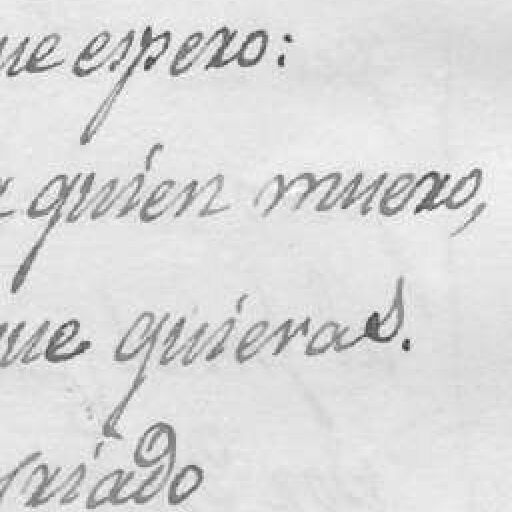 ue espero:
a quien muero,
ue quieras.
riado